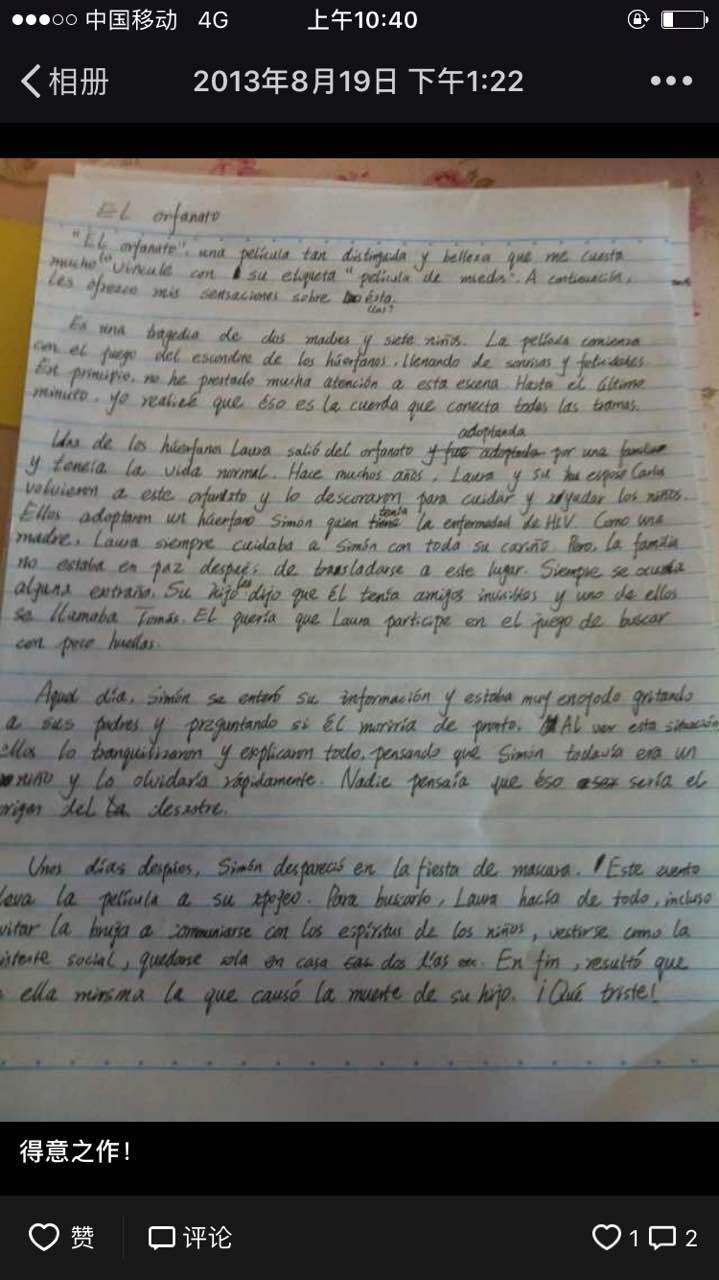 中国移动 4G 上午10:40
相册 2013年8月19日 下午1:22
EL orfanato
"EL orfanato", una película tan distinguida y belleza que me cuesta
mucho lo vincule con su etiqueta "película de miedo". A continuación,
les ofrezco mis sensaciones sobre ésta.
Es una tragedia de dos madres y siete niños. La película comienza
con el juego del escondite de los húerfanos, llenando de sonrisas y felicidades.
En principio, no he prestado mucha atención a esta escena. Hasta el último
minuto, yo realicé que éso es la cuerda que conecta todas las tramas.
adoptanda
Una de los húerfanos Laura salió del orfanato y fue adoptada por una familia
y tencía la vida normal. Hace muchos años, Laura y su esposo Carlos
volvieron a este orfanato y lo descoraron para cuidar y ayudar los niños.
tenía
Ellos adoptaron un húerfano Simón quien tiene la enfermedad de HIV. Como una
madre, Laura siempre cuidaba a Simón con toda su cariño. Pero, la familia
no estaba en paz después de transladarse a este lugar. Siempre se ocurría
alguna extraña. Su hijo les dijo que él tenía amigos invisibles y uno de ellos
se llamaba Tomás. EL quería que Laura participe en el juego de buscar
con poco huellas.
Aquel día, Simón se enteró su información y estaba muy enojodo gritando
a sus padres y preguntando si él moriría de pronto. AL ver esta situación
ellos lo tranquilizaron y explicaron todo, pensando que Simón todavía era un
niño y lo olvidaría rápidamente. Nadie pensaía que éso sería el
origen del desastre.
Unos días despúes, Simón despareció en la fiesta de mascara. Este evento
leva la película a su apojeo. Para buscarlo, Laura hacía de todo, incluso
vitar la bruja a communiarse con los espíritus de los niños, vestirse como la
intente social, quedarse sola en casa dos días. En fin, resultó que
ella minsma la que causó la muerte de su hijo. ¡Qué triste!
得意之作！
赞 评论 1 2